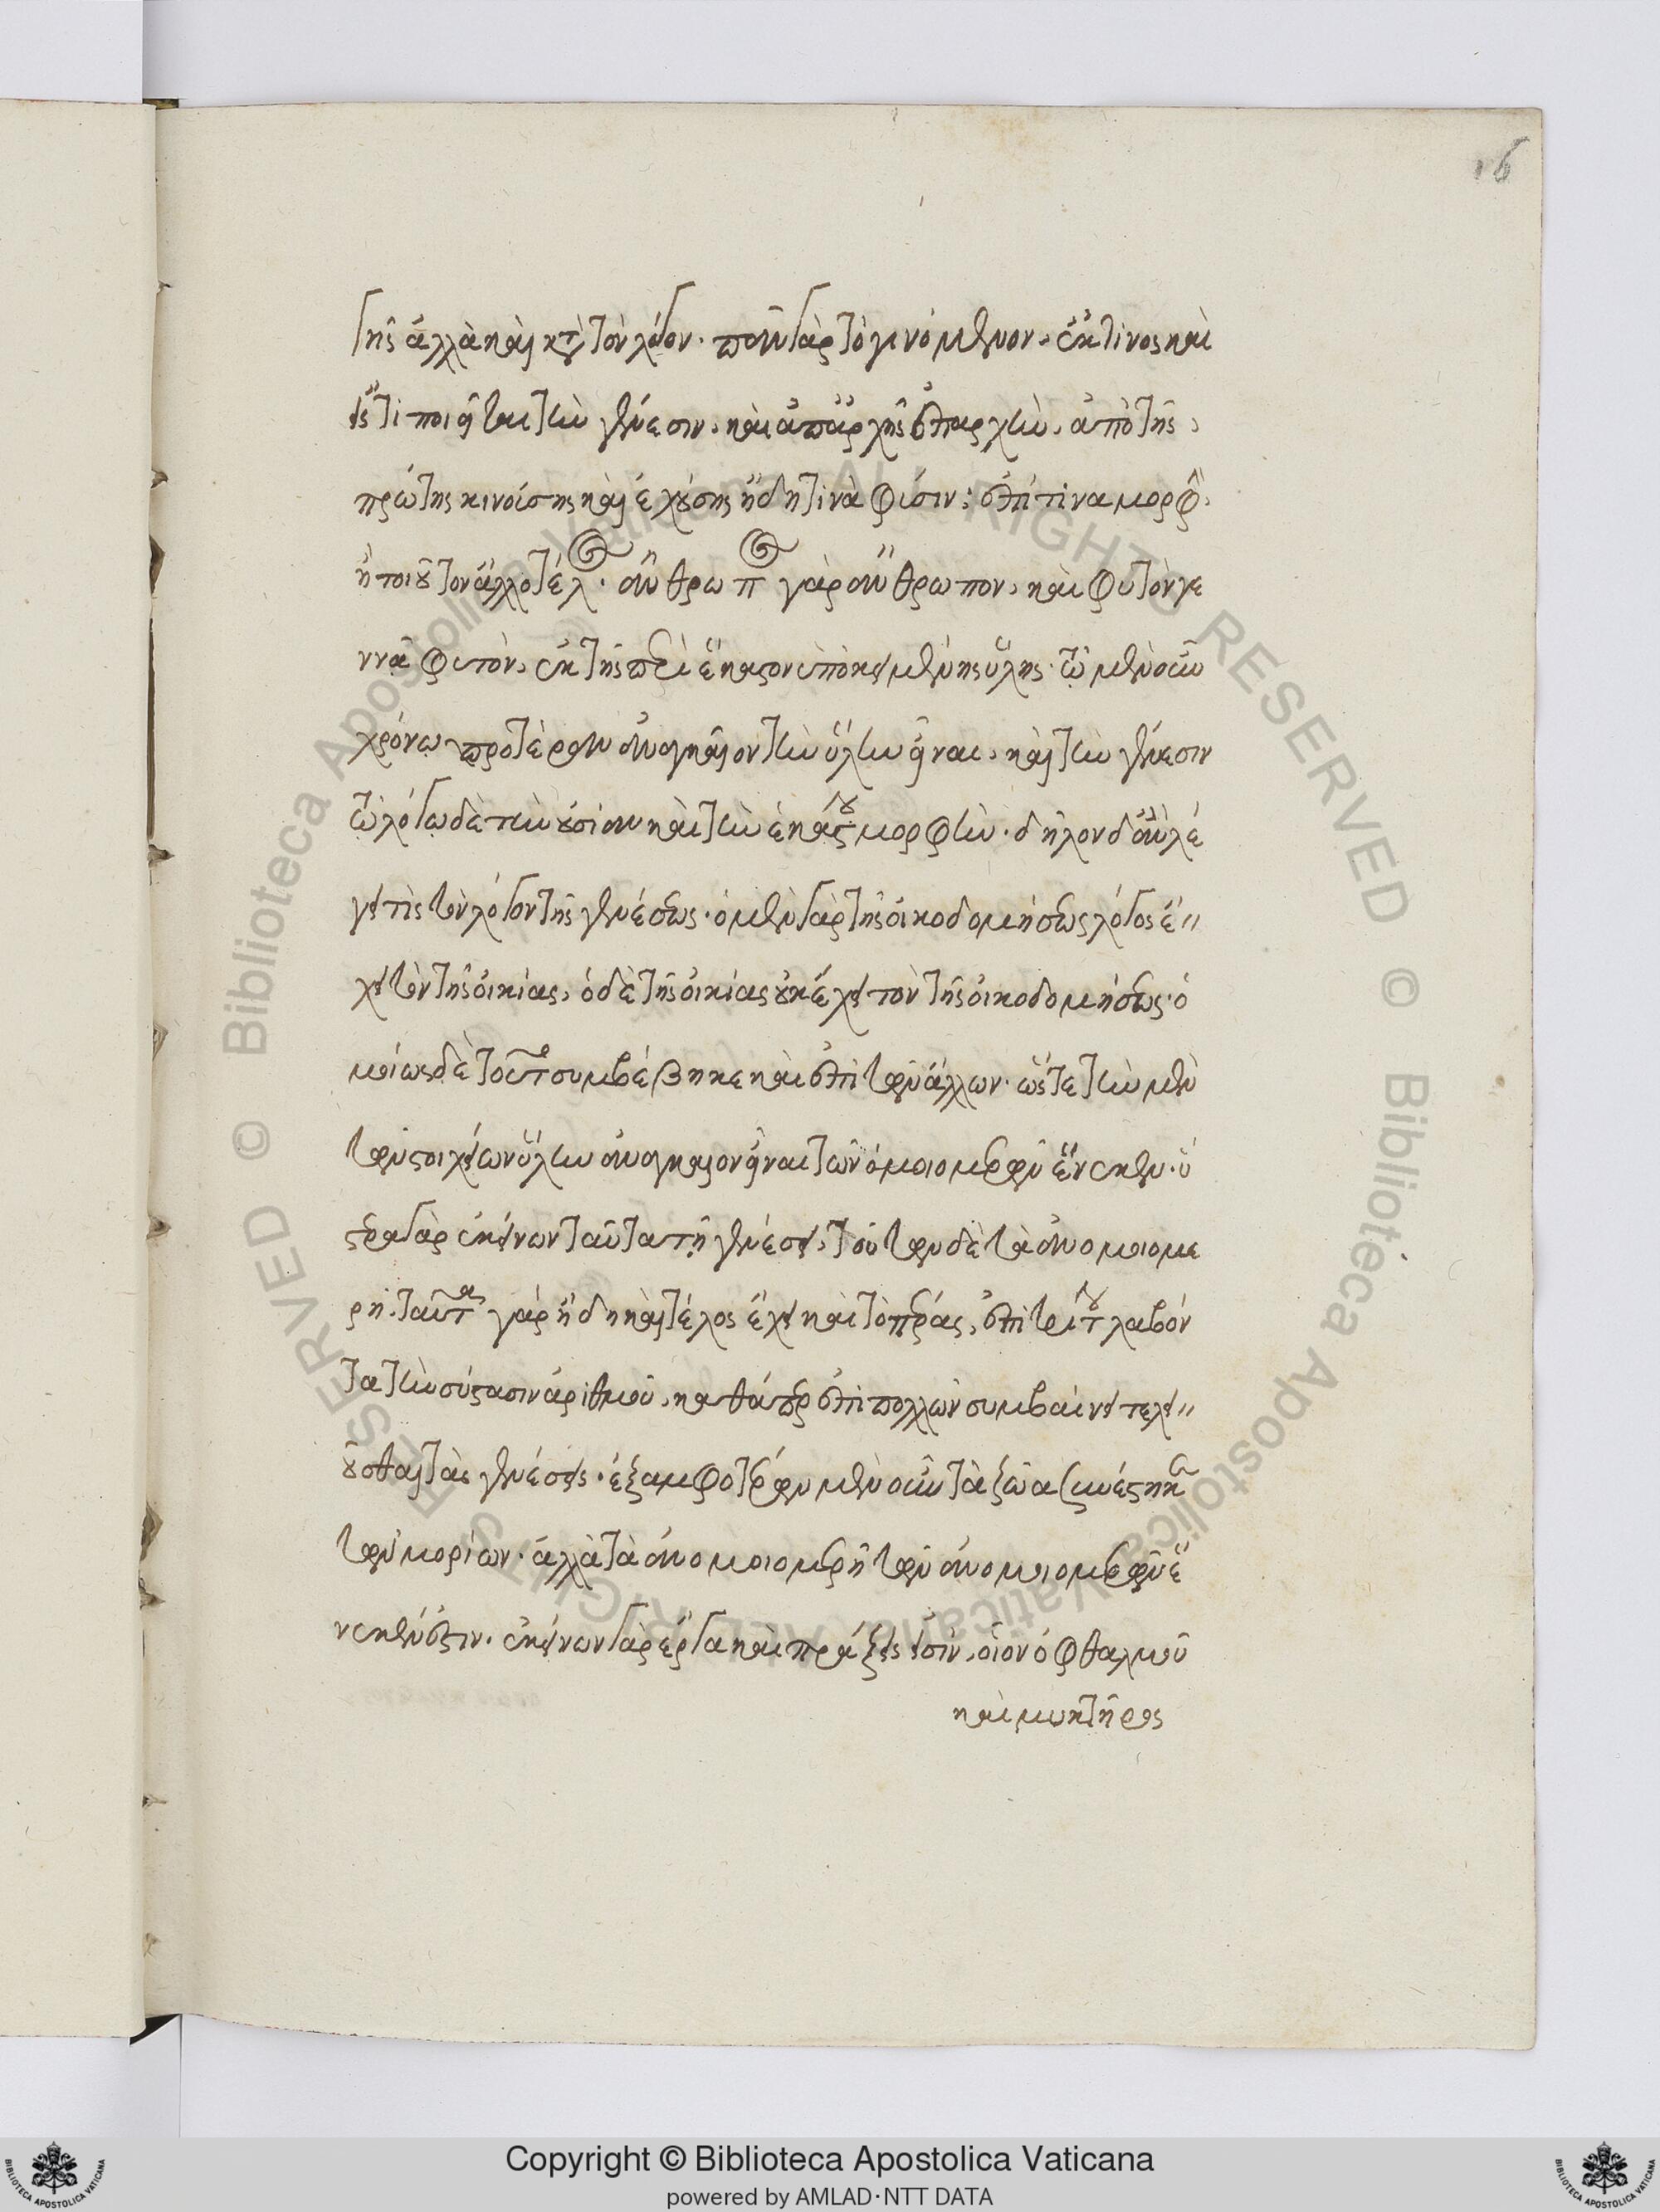 16
γης ἀλλὰ καὶ κατὰ τὸν λόγον· πᾶν γὰρ τὸ γινόμενον, ἔκ τινος καὶ
εἴς τι ποιεῖται τὴν γένεσιν, καὶ ἀπ' ἀρχῆς ἐπ' ἀρχὴν, ἀπὸ τῆς,
πρώτης κινούσης καὶ ἐχούσης ἤδη τινὰ φύσιν, ἐπί τινα μορφὴν
ἢ τοιοῦτον ἄλλο τέλος· ἄνθρωπος γὰρ ἄνθρωπον, καὶ φυτὸν γε
ννᾷ φυτὸν, ἐκ τῆς περὶ ἕκαστον ὑποκειμένης ὕλης· τῷ μὲν οὖν
χρόνῳ προτέραν ἀναγκαῖον τὴν ὕλην εἶναι, καὶ τὴν γένεσιν
τῷ λόγῳ δὲ τὴν οὐσίαν καὶ τὴν ἑκάστου μορφὴν· δῆλον δ' ἂν λέ
γῃ τις τὸν λόγον τῆς γενέσεως· ὁ μὲν γὰρ τῆς οἰκοδομήσεως λόγος ἔ〃
χει τὸν τῆς οἰκίας, ὁ δὲ τῆς οἰκίας οὐκ ἔχει τὸν τῆς οἰκοδομήσεως· ὁ
μοίως δὲ τοῦτο συμβέβηκε καὶ ἐπὶ τῶν ἄλλων· ὥστε τὴν μὲν
τῶν στοιχείων ὕλην ἀναγκαῖον εἶναι τῶν ὁμοιομερῶν ἕνεκεν· ὑ
στερα γὰρ ἐκείνων ταῦτα τῇ γενέσει, τούτων δὲ τὰ ἀνομοιομε
ρῆ· ταῦτα γὰρ ἤδη καὶ τέλος ἔχει καὶ τὸ πέρας, ἐπὶ τρίτου λαβόν
τα τὴν σύστασιν ἀριθμοῦ, καθάπερ ἐπὶ πολλῶν συμβαίνει τελει〃
οῦσθαι τὰς γενέσεις· ἐξ ἀμφοτέρων μὲν οὖν τὰ ζῶα συνέστηκε
τῶν μορίων· ἀλλὰ τὰ ἀνομοιομερῆ τῶν ἀνομοιομερῶν ἕ
νεκέν ἐστιν· ἐκείνων γὰρ ἔργα καὶ πράξεις εἰσὶν, οἷον ὀφθαλμοῦ
καὶ μυκτῆρος
Copyright © Biblioteca Apostolica Vaticana
powered by AMLAD·NTT DATA